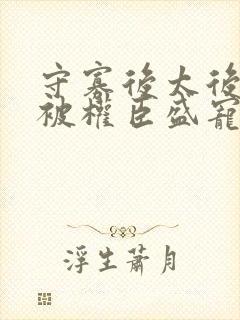 守寡後太後
被權臣盛寵
浮生蕭月